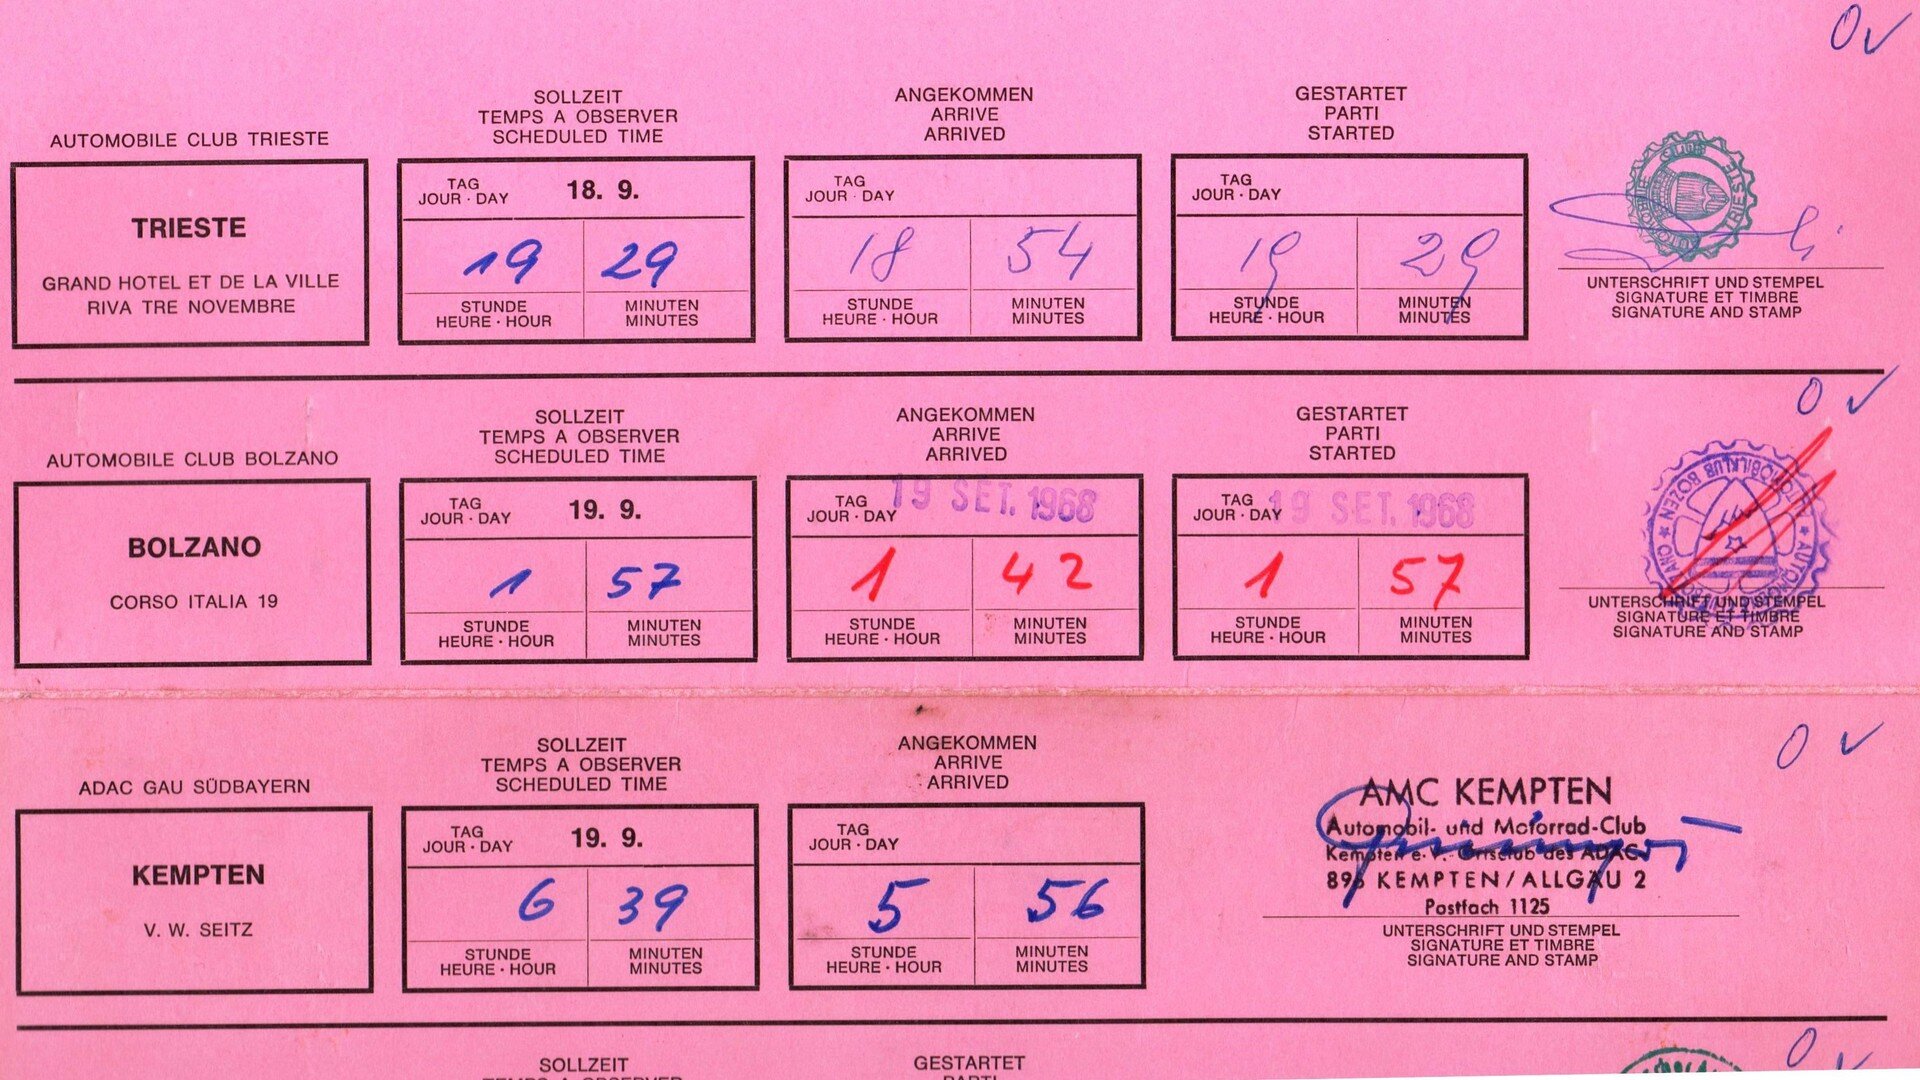 0✓
AUTOMOBILE CLUB TRIESTE
TRIESTE
GRAND HOTEL ET DE LA VILLE
RIVA TRE NOVEMBRE
SOLLZEIT
TEMPS A OBSERVER
SCHEDULED TIME
TAG
JOUR · DAY 18. 9.
19 29
STUNDE MINUTEN
HEURE · HOUR MINUTES
ANGEKOMMEN
ARRIVE
ARRIVED
TAG
JOUR · DAY
18 54
STUNDE MINUTEN
HEURE · HOUR MINUTES
GESTARTET
PARTI
STARTED
TAG
JOUR · DAY
19 29
STUNDE MINUTEN
HEURE · HOUR MINUTES
CLUB TRIESTE
UNTERSCHRIFT UND STEMPEL
SIGNATURE ET TIMBRE
SIGNATURE AND STAMP
0 ✓
AUTOMOBILE CLUB BOLZANO
BOLZANO
CORSO ITALIA 19
SOLLZEIT
TEMPS A OBSERVER
SCHEDULED TIME
TAG
JOUR · DAY 19. 9.
1 57
STUNDE MINUTEN
HEURE · HOUR MINUTES
ANGEKOMMEN
ARRIVE
ARRIVED
19 SET. 1968
TAG
JOUR · DAY
1 42
STUNDE MINUTEN
HEURE · HOUR MINUTES
GESTARTET
PARTI
STARTED
19 SET. 1968
TAG
JOUR · DAY
1 57
STUNDE MINUTEN
HEURE · HOUR MINUTES
AUTOMOBILKLUB BOZEN
UNTERSCHRIFT UND STEMPEL
SIGNATURE ET TIMBRE
SIGNATURE AND STAMP
0 ✓
ADAC GAU SÜDBAYERN
KEMPTEN
V. W. SEITZ
SOLLZEIT
TEMPS A OBSERVER
SCHEDULED TIME
TAG
JOUR · DAY 19. 9.
6 39
STUNDE MINUTEN
HEURE · HOUR MINUTES
ANGEKOMMEN
ARRIVE
ARRIVED
TAG
JOUR · DAY
5 56
STUNDE MINUTEN
HEURE · HOUR MINUTES
AMC KEMPTEN
Automobil- und Motorrad-Club
Kempten e. V. Ortsclub des ADAC
896 KEMPTEN/ALLGÄU 2
Postfach 1125
UNTERSCHRIFT UND STEMPEL
SIGNATURE ET TIMBRE
SIGNATURE AND STAMP
0 ✓
SOLLZEIT
TEMPS A OBSERVER
GESTARTET
PARTI